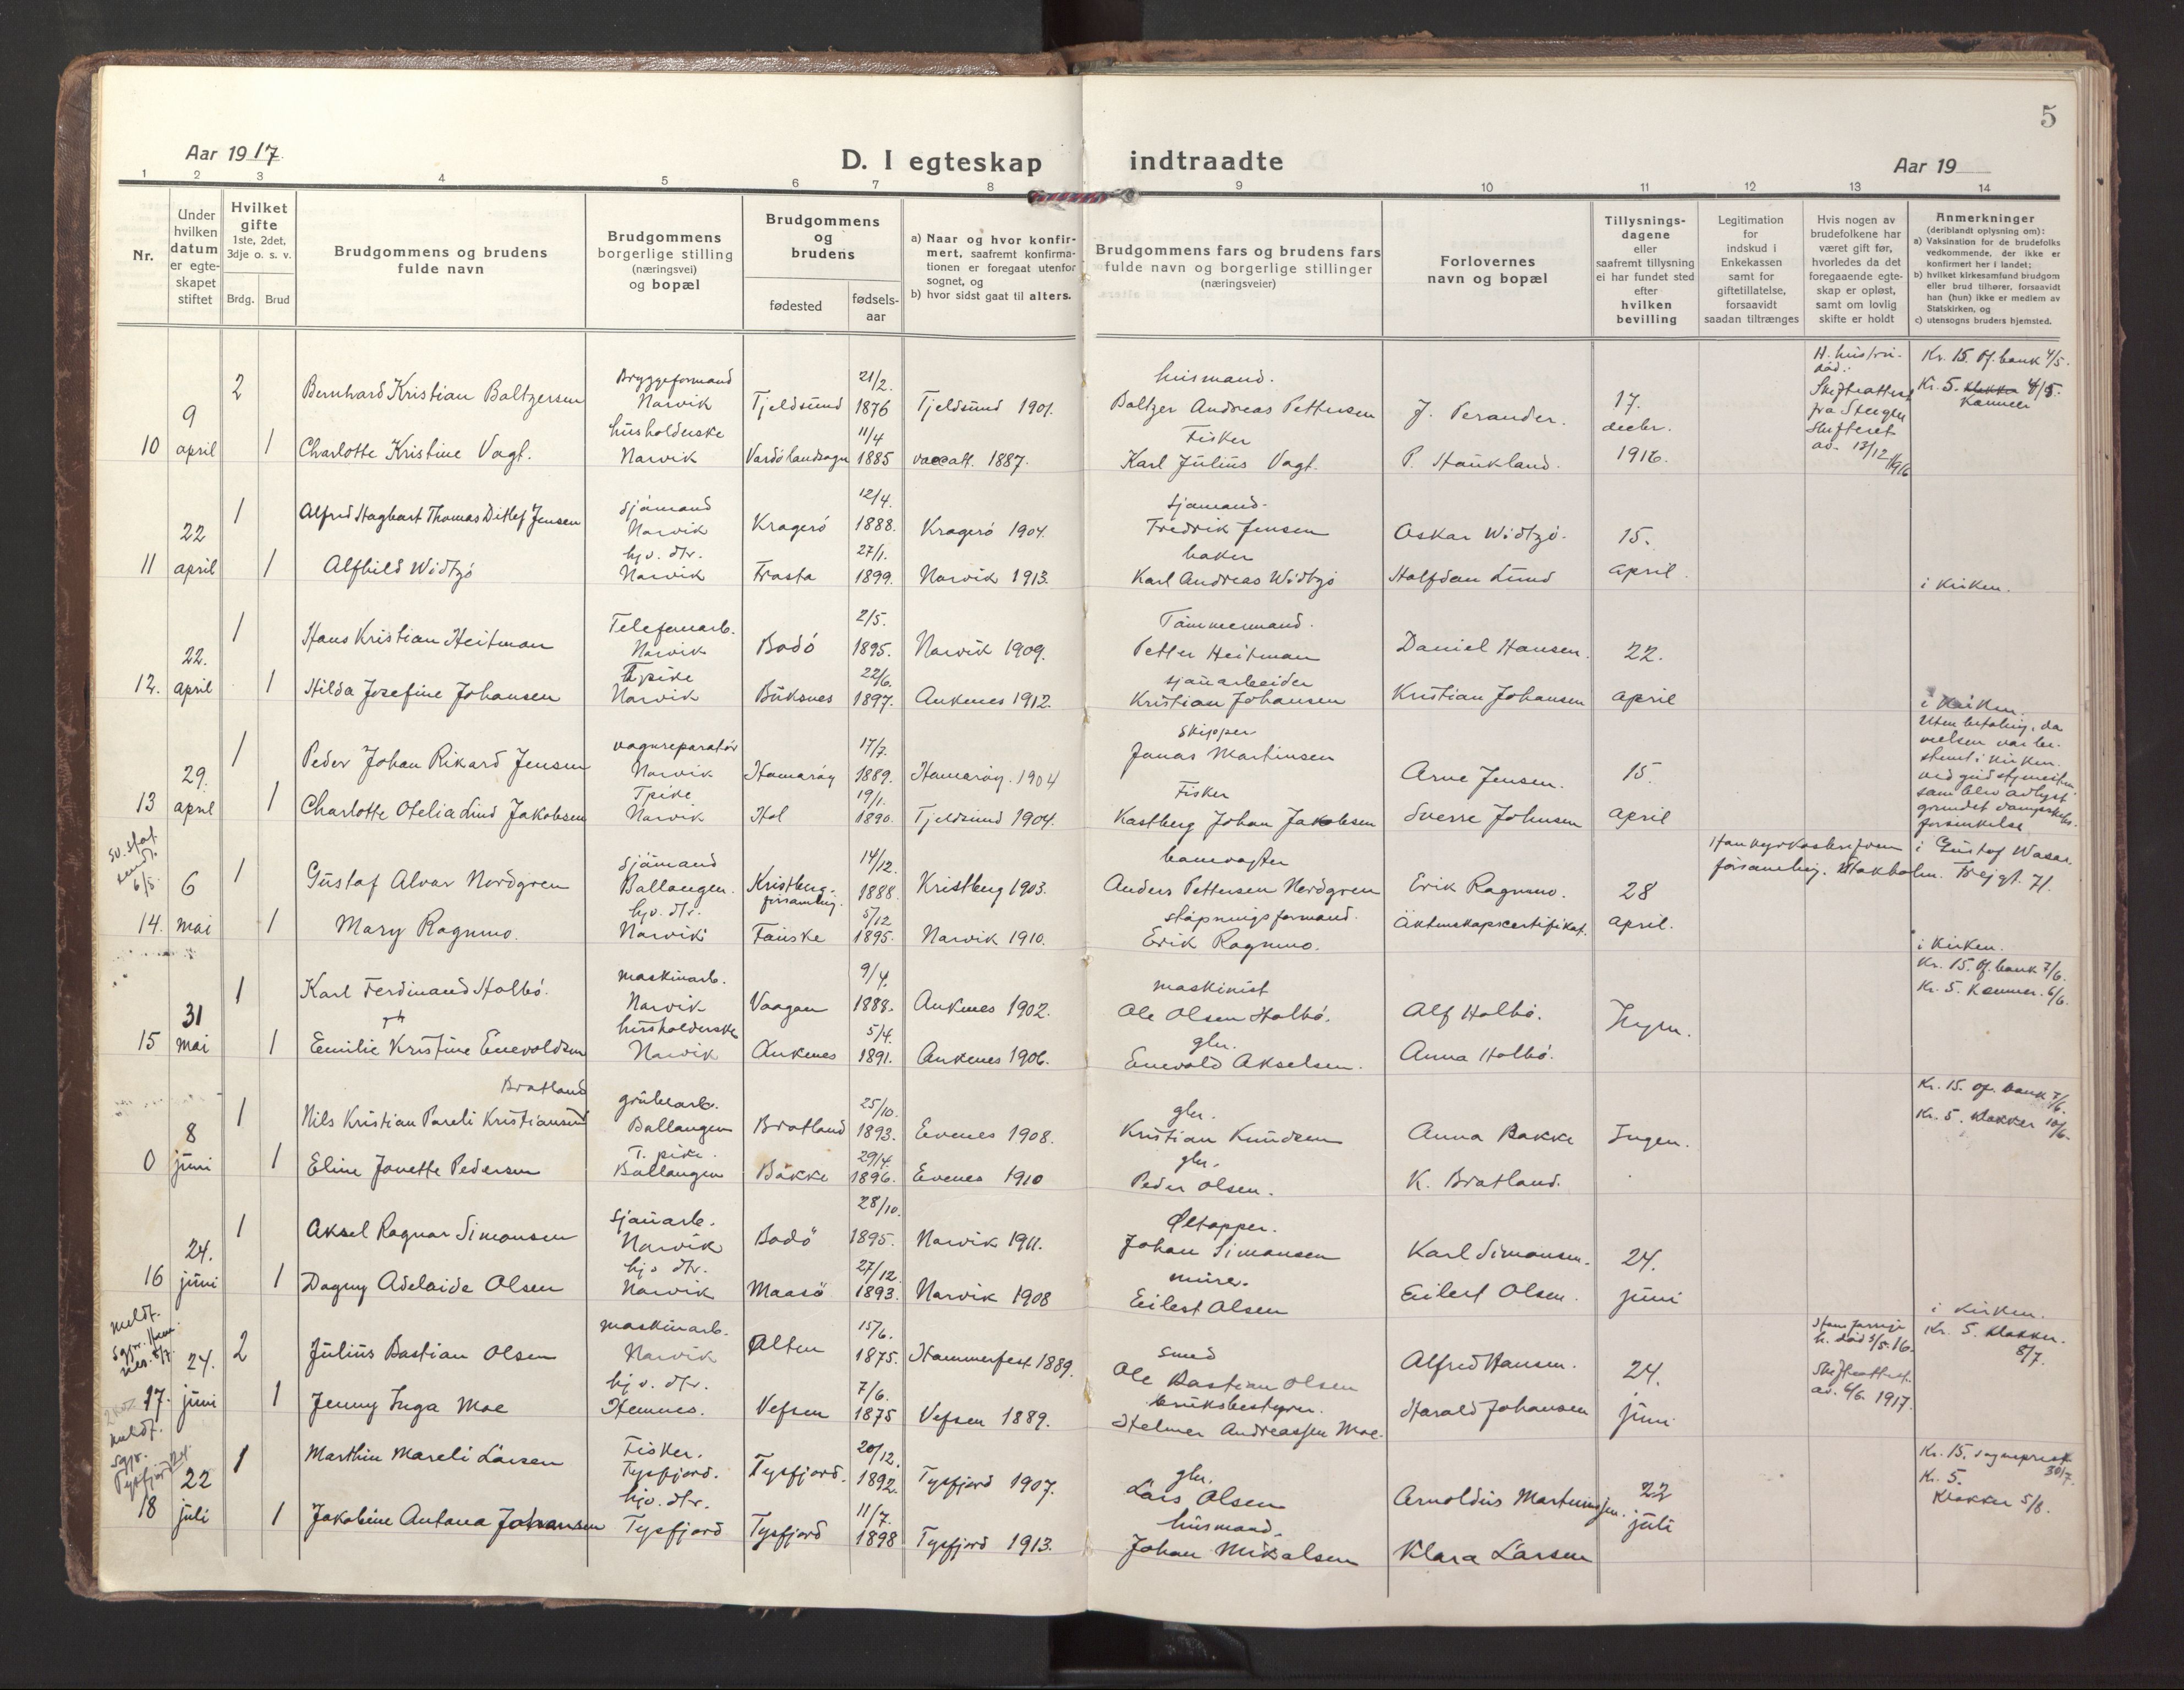 5
Aar 1917
D. I egteskap indtraadte
Aar 19
1 2 3 4 5 6 7 8 9 10 11 12 13 14
Nr.
Under hvilken datum er egte-skapet stiftet
Hvilket gifte
1ste, 2det, 3dje o. s. v.
Brdg. Brud
Brudgommens og brudens fulde navn
Brudgommens borgerlige stilling (næringsvei) og bopæl
Brudgommens og brudens
fødested
fødsels-aar
a) Naar og hvor konfir-mert, saafremt konfirma-tionen er foregaat utenfor sognet, og
b) hvor sidst gaat til alters.
Brudgommens fars og brudens fars fulde navn og borgerlige stillinger (næringsveier)
Forlovernes navn og bopæl
Tillysnings-dagene eller saafremt tillysning ei har fundet sted efter hvilken bevilling
Legitimation for indskud i Enkekassen samt for giftetillatelse, forsaavidt saadan tiltrænges
Hvis nogen av brudefolkene har været gift før, hvorledes da det foregaaende egte-skap er opløst, samt om lovlig skifte er holdt
Anmerkninger (deriblandt oplysning om):
a) Vaksination for de brudefolks vedkommende, der ikke er konfirmert her i landet;
b) hvilket kirkesamfund brudgom eller brud tilhører, forsaavidt han (hun) ikke er medlem av Statskirken, og
c) utensogns bruders hjemsted.
10 9 april
2 Bernhard Kristian Baltzersen Bryggeformand Narvik Tjeldsund 21/2. 1876 Tjeldsund 1901. husmand. Baltzer Andreas Pettersen J. Perander. 17. decbr. 1916.
H. hustru død. Skifteattest fra Steigen Skifteret av 13/12 1916
Kr. 15. Of. bank 4/5.
Kr. 5. klokker 4/5. Kæmner
1 Charlotte Kristine Vagt. husholderske Narvik Vardö landsogn 11/4 1885 vacc att. 1887. Fisker Karl Julius Vagt. P. Haukland.
11 22 april
1 Alfred Hagbart Thomas Ditlef Jensen sjömand Narvik Kragerö 12/4. 1888. Kragerö 1904. sjömand. Fredrik Jensen Oskar Widtzö. 15. april.
1 Alfhild Widtzö hjv. dtr. Narvik Frosta 27/1. 1899. Narvik 1913. baker Karl Andreas Widtzö Halfdan Lund i kirken.
12. 22. april
1 Hans Kristian Heitman Telefonarb. Narvik Bodö 2/5. 1895. Narvik 1909. Tömmermand. Petter Heitman Daniel Hansen. 22. april
1 Hilda Josefine Johansen Tpike Narvik Buksnes 22/6. 1897. Ankenes 1912. sjauarbeider Kristian Johansen Kristian Johansen i kirken.
13 29. april
1 Peder Johan Rikard Jensen vognreparatör Narvik Hamaröy 17/7. 1889. Hamaröy. 1904 skipper Jonas Martinsen Arne Jensen. 15. april
Uten betaling, da vielsen var be-stemt i kirken. ved gudstjenesten, som blev avlyst grundet forsinkelse
1 Charlotte Otelia Lind Jakobsen Tpike Narvik Hol 19/1. 1890. Tjeldsund 1904. Fisker Kastberg Johan Jakobsen Sverre Johnsen
sv. stat. sendt. 6/5.
14. 6 mai
1 Gustaf Alvar Nordgren sjömand Ballangen. Kristberg. forsamling. 14/12. 1888. Kristberg 1903. banevogter Anders Pettersen Nordgren Erik Ragnmo. 28 april.
i Gustaf Wasa. församling. Stockholm. Frejgt. 71.
1 Mary Ragnmo. hjv. dtr. Narvik Fauske 5/12 1895. Narvik 1910. stöpningsformand. Erik Ragnmo. Äktenskapscertifikat. i kirken.
15 31 mai
1 Karl Ferdinand Holbö. maskinarb. Narvik Vaagan 9/4. 1888. Ankenes 1902. maskinist Ole Olsen Holbö. Alf Holbö. Ingen.
Kr. 15. Of. bank 7/6.
Kr. 5. Kæmner. 6/6.
1 Emilie Kristine Enevoldsen husholderske Narvik Ankenes 5/4. 1891. Ankenes 1906. gbr. Enevold Akselsen. Anna Holbö.
0 8 juni
1 Nils Kristian Pareli Kristiansen Bratland grubearb. Ballangen Bratland 25/10. 1893. Evenes 1908. gbr. Kristian Knudsen Anna Bakke Ingen.
Kr. 15. Of. bank 7/6.
Kr. 5. Klokker 10/6.
1 Eline Janette Pedersen T. pike. Ballangen Bakke 29/4. 1896. Evenes 1910 gbr. Peder Olsen. K. Bratland.
16 24. juni
1 Aksel Ragnar Simonsen sjauarb. Narvik Bodö 28/10. 1895. Narvik 1911. Øltapper. Johan Simonsen Karl Simonsen. 24. juni
1 Dagny Adelaide Olsen hjv. dtr. Narvik Maasö 27/12. 1893. Narvik 1908 murer. Eilert Olsen Eilert Olsen. i kirken.
meldt. sgpr. Hem-nes. 5/7.
17. 24. juni
2 Julius Bastian Olsen maskinarb. Narvik Alten 15/6. 1875. Hammerfest 1889. smed Ole Bastian Olsen Alfred Hansen. 24. juni
h. död 5/5. 16. Skifteattest. av. 6/6. 1917.
Kr. 5. klokker. 8/7.
1 Jenny Inga Moe hjv. dtr. Hemnes. Vefsen 7/6. 1875 Vefsen 1889. bruksbestyrer. Helmer Andreassen Moe. Harald Johansen
meldt. sgpr. Tysfjord 24.
18 22 juli
1 Marthin Mareli Larsen Fisker. Tysfjord. Tysfjord. 20/12. 1892. Tysfjord 1907. gbr. Lars Olsen Arnoldus Martinussen. 22 juli
Kr. 15. sogneprest 30/7.
Kr. 5. Klokker 5/8.
1 Jakobine Antona Johansen hjv. dtr. Tysfjord Tysfjord 11/7. 1898 Tysfjord 1913. husmand. Johan Mikalsen Klara Larsen